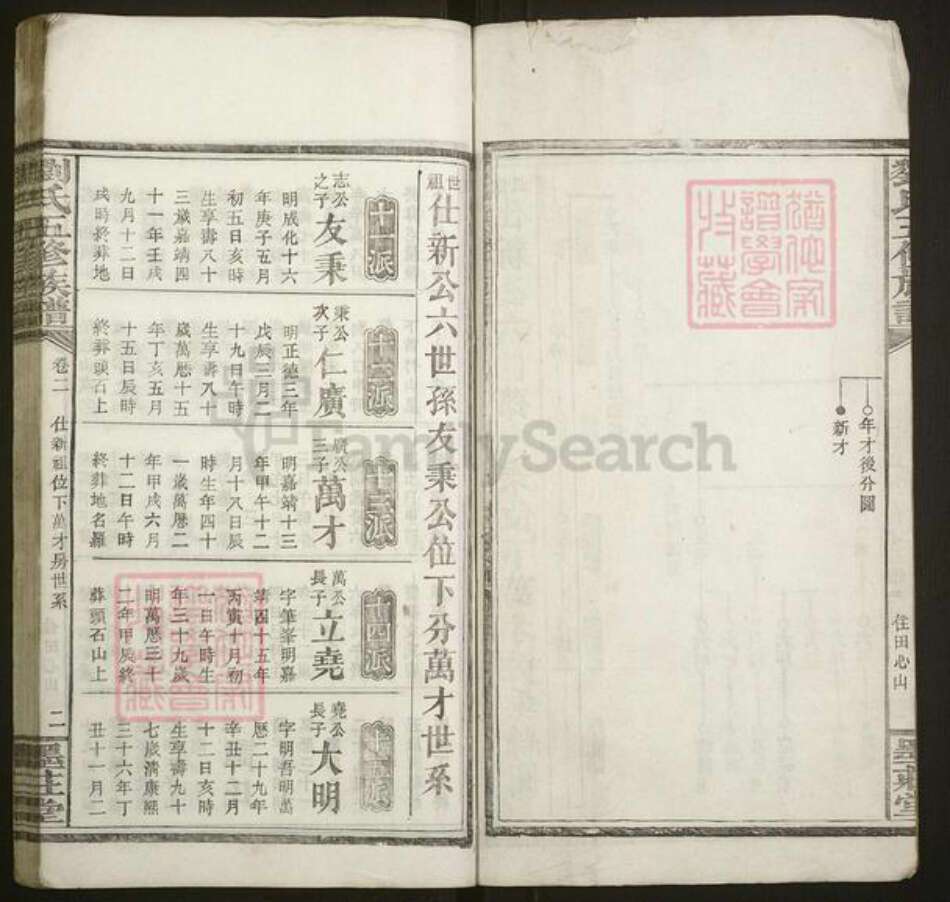 年才後分圖
新才
住田心山
世祖仕新公六世孫友秉公位下分萬才世系
十一派
志公之子友秉
明成化十六
年庚子五月
初五日亥時
生享壽八十
三歲嘉靖四
十一年壬戌
九月十二日
戌時終葬地
十二派
秉公次子仁廣
明正德三年
戊辰三月二
十九日午時
生享壽八十
歲萬曆十五
年丁亥五月
十五日辰時
終葬頭石上
十三派
廣公三子萬才
明嘉靖十三
年甲午十二
月十八日辰
時生年四十
一歲萬曆二
年甲戌六月
十二日午時
終葬地名羅
十四派
萬公長子立堯
字筆峯明嘉
靖四十五年
丙寅十月初
一日午時生
年三十九歲
明萬曆三十
二年甲辰終
葬頭石山上
十五派
堯公長子大明
字明吾明萬
曆二十九年
辛丑十二月
十二日亥時
生享壽九十
七歲清康熙
三十六年丁
丑十一月二
劉氏五修族譜
卷二
仕新祖位下萬才房世系
二
墨莊堂
FamilySearch